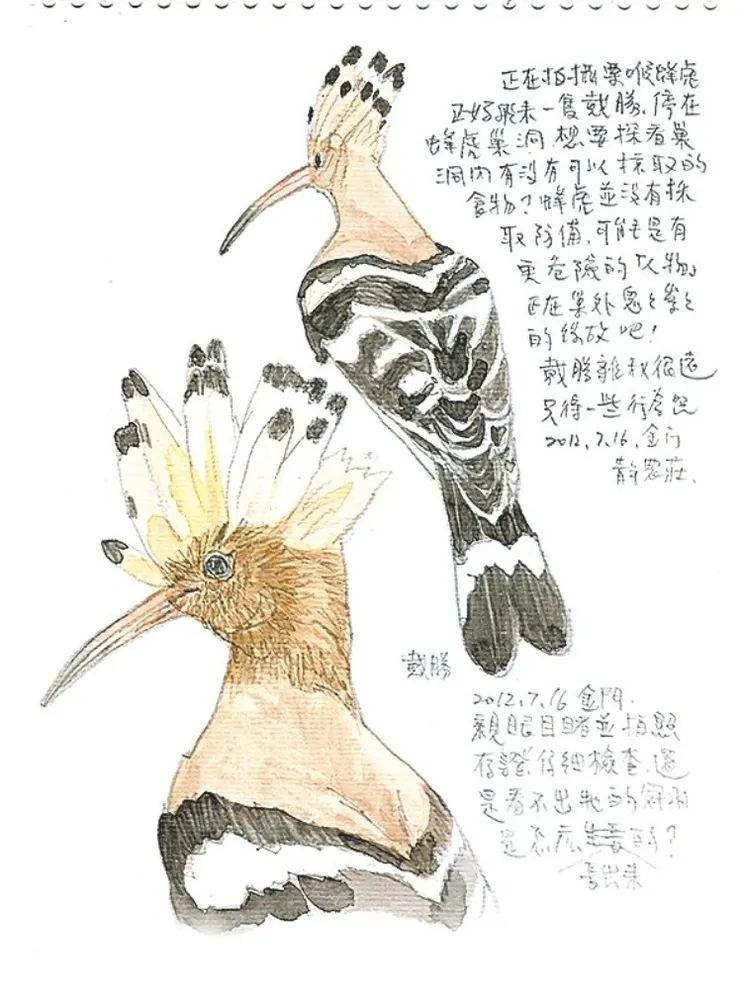 正在拍攝栗喉蜂虎
正好飛來一隻戴勝.停在
蜂虎巢洞.想要探看巢
洞內有沒有可以採取的
食物?蜂虎並沒有採
取防備,可能是有
更危險的人物
正在巢外
的緣故吧!
戴勝離我很遠
只得一些行為
2012,7,16,金门
戴勝
2012,7,16 金門.
親眼目睹並拍照
存證.仔細檢查.還
是看不出牠的冠羽
是怎麼 的?
長出來